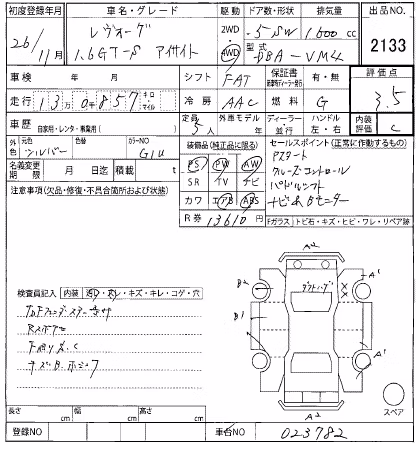 初度登録年月 車名・グレード 駆動 ドア数・形状 排気量 出品NO.
26/11月 レヴォーグ 2WD -5SW 1,600cc 2133
1.6GT-S アイサイト 4WD 型式 DBA-VM4
車検 年 月 シフト FAT 保証書 有・無 評価点
走行 13万0千857 キロ マイル 冷房 AAC 燃料 G 3.5
車歴 自家用・レンタ・事業用( ) 定員 5人 外車モデル 年 ディーラー 並行 ハンドル 左・右 内装評価 C
外色 元色 シルバー 色替 カラーNO G1U 装備品(純正品に限る) セールスポイント(正常に作動するもの)
名義変更期限 月 日迄 積載 t PS PW AW
注意事項(欠品・修復・不具合箇所および状態) SR TV ナビ クルーズコントロール
カワ エアB ABS パドルシフト
R券 13610円 ナビ&Bモニター
Fガラス トビ石・キズ・ヒビ・ワレ・リペア跡
A2
B2 A1
B1
A1
A2
検査員記入 内装 汚れ・スレ・キズ・キレ・コゲ・穴
スペア
長さ cm 幅 cm 高さ cm
登録NO 車台NO 023782